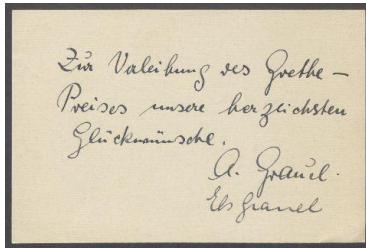 Zur Verleihung des Goethe-
Preises unsere herzlichsten
Glückwünsche.
A. Grauel.
Els Grauel